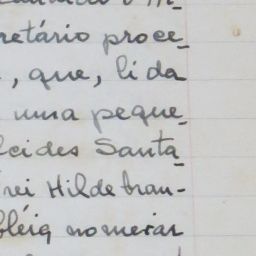 retário proce_
, que, lida
uma peque_
lcides Santa_
rei Hildebran-
bléia nomeiar